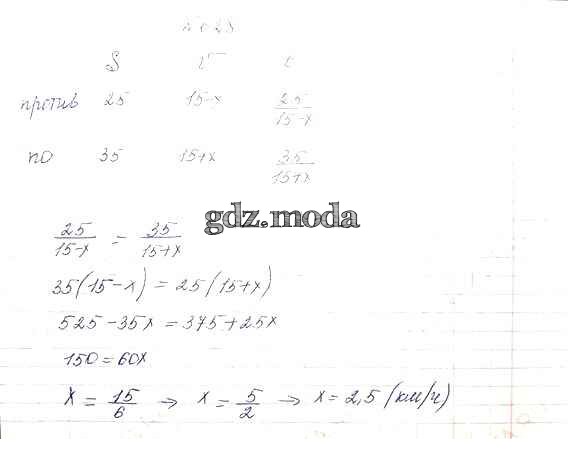 S v t
против 25 15-x 25/(15-x)
по 35 15+x 35/(15+x)
gdz.moda
25/(15-x) = 35/(15+x)
35(15-x) = 25(15+x)
525-35x = 375+25x
150=60x
x = 15/6 → x = 5/2 → x = 2,5 (км/ч)